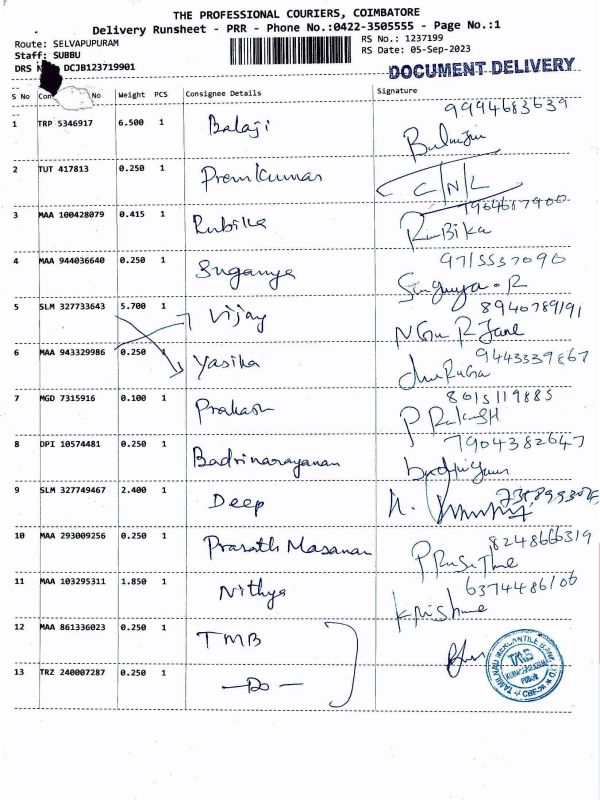 THE PROFESSIONAL COURIERS, COIMBATORE
Delivery Runsheet - PRR - Phone No.:0422-3505555 - Page No.:1
Route: SELVAPUPURAM RS No.: 1237199
Staff: SUBBU RS Date: 05-Sep-2023
DRS DCJB123719901 DOCUMENT DELIVERY
S No No Weight PCS Consignee Details Signature
9994683639
1 TRP 5346917 6.500 1 Balaji
2 TUT 417813 0.250 1 Premkumar C/N/L
3 MAA 100428079 0.415 1 Rubika RuBika
4 MAA 944036640 0.250 1 Suganya 9715537090
Suguya.R
5 SLM 327733643 5.700 1 Vijay 8940789191
6 MAA 943329986 0.250 1 Yasika 9443339867
7 MGD 7315916 0.100 1 Prakash 8015119885
8 DPI 10574481 0.250 1 Badrinarayanan 7904382647
9 SLM 327749467 2.400 1 Deep
10 MAA 293009256 0.250 1 Prasath Masanan 8248666319
11 MAA 103295311 1.850 1 Nithya 6374486106
12 MAA 861336023 0.250 1 TMB
13 TRZ 240007287 0.250 1 -Do-
TAMILNAD MERCANTILE BANK LTD